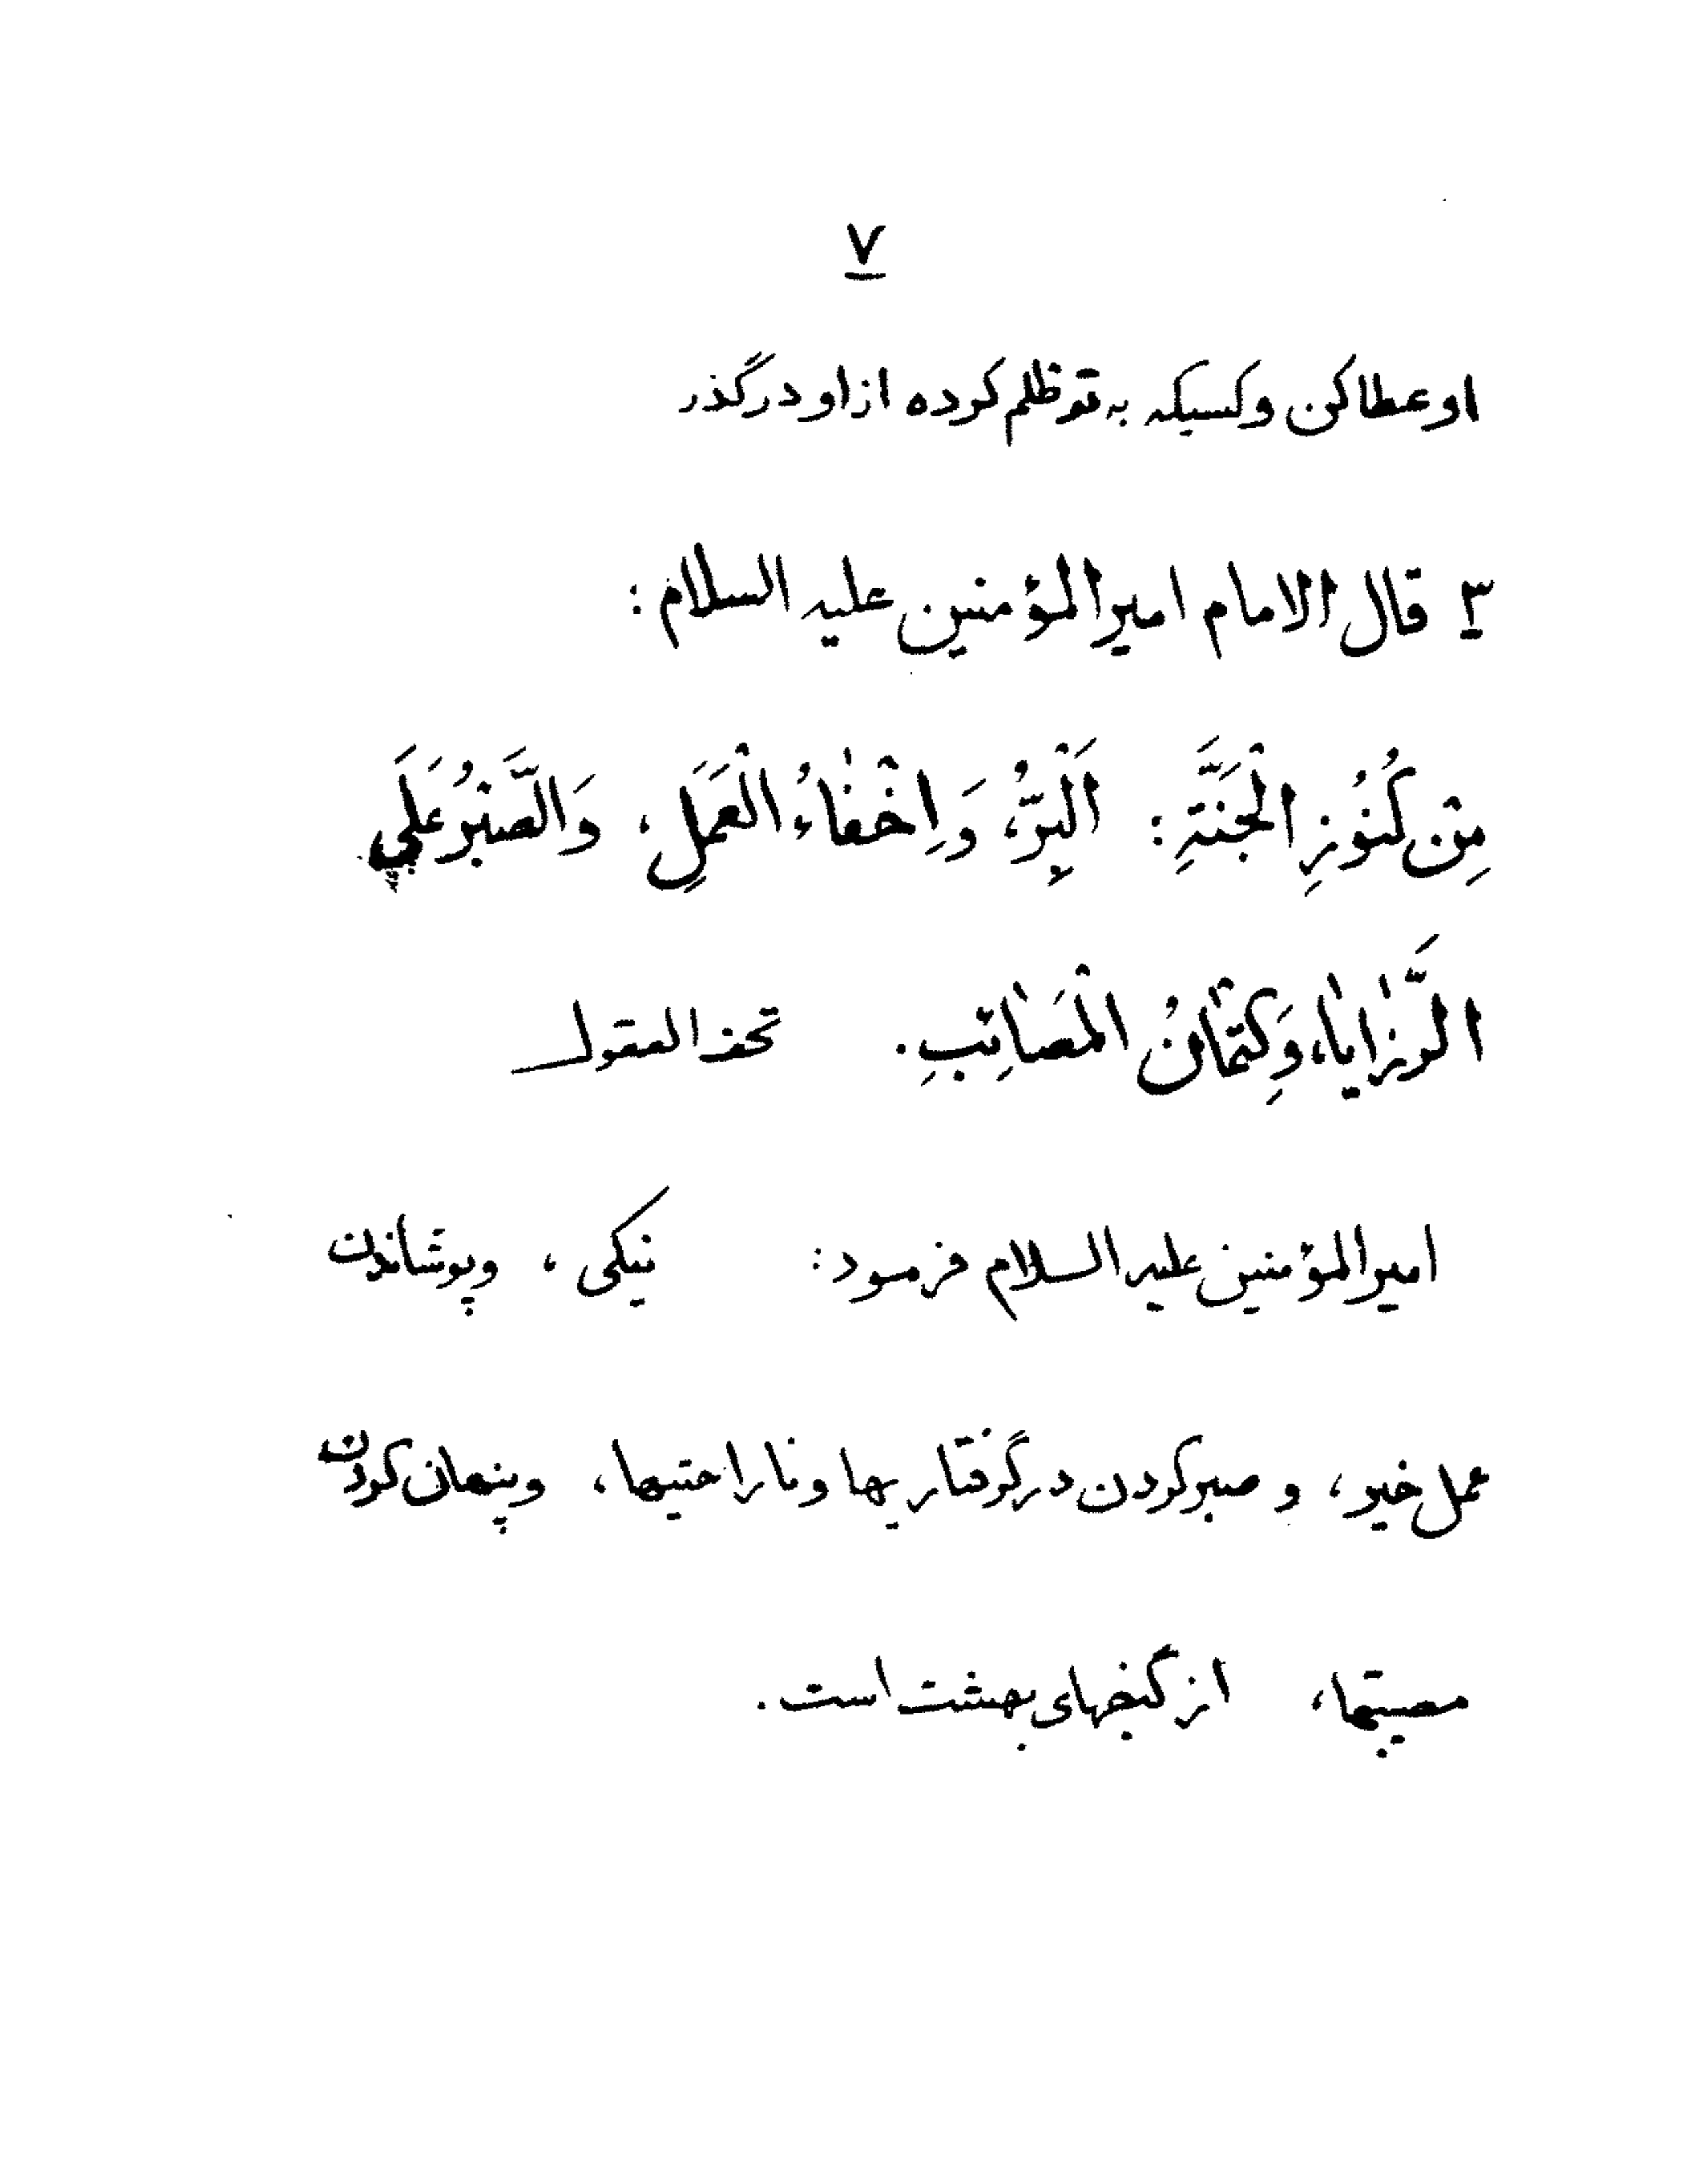 ۷
او عطا کن و کسیکه به تو ظلم کرده از او درگذر
۳ قال الامام امیرالمؤمنین علیه السلام :
مِنْ كُنُوزِ الْجَنَّةِ : اَلْبِرُّ، وَ اِخْفٰاءُ الْعَمَلِ، وَالصَّبْرُ عَلَي
الرَّزٰايٰا، وَكِتْمٰانُ الْمَصٰائِبِ. تحف العقول
امیرالمؤمنین علیه السلام فرمود: نیکی ، و پوشاندن
عمل خیر ، و صبر کردن در گرفتاریها و ناراحتیها ، و پنهان کردن
مصیبتها ، از گنجهای بهشت است .